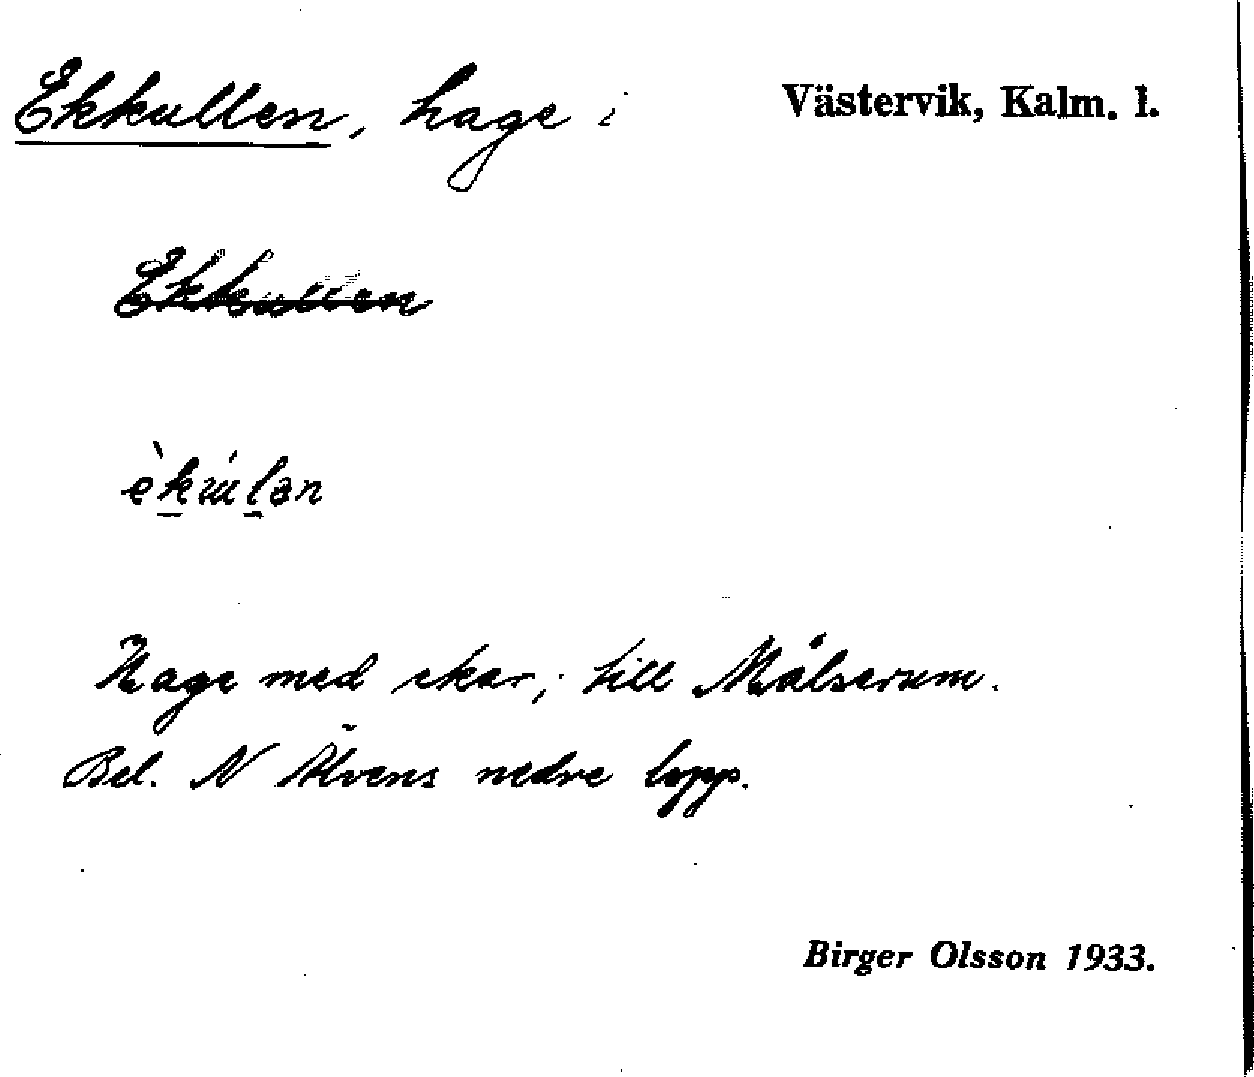 Ekkullen, hage i Västervik, Kalm. l.
Ekkullen
Hage med ekar, till Målserum.
Bel. N Älvens nedre lopp.
Birger Olsson 1933.